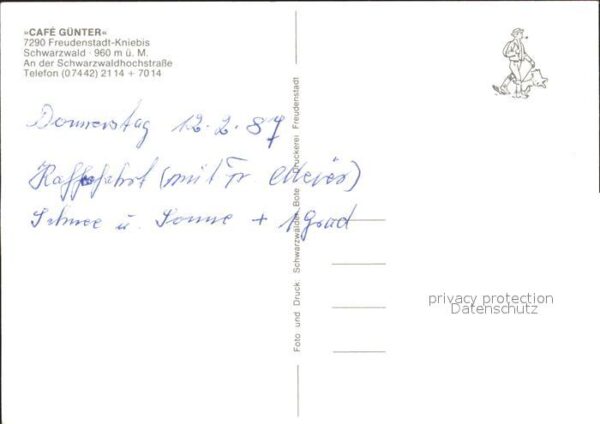 »CAFÉ GÜNTER«
7290 Freudenstadt-Kniebis
Schwarzwald · 960 m ü. M.
An der Schwarzwaldhochstraße
Telefon (07442) 2114 + 7014
Donnerstag 12.2.87
(mit Fr Meier)
Schnee u. Sonne + 1 Grad
Foto und Druck: Schwarzwälder Bote, Druckerei Freudenstadt
privacy protection
Datenschutz